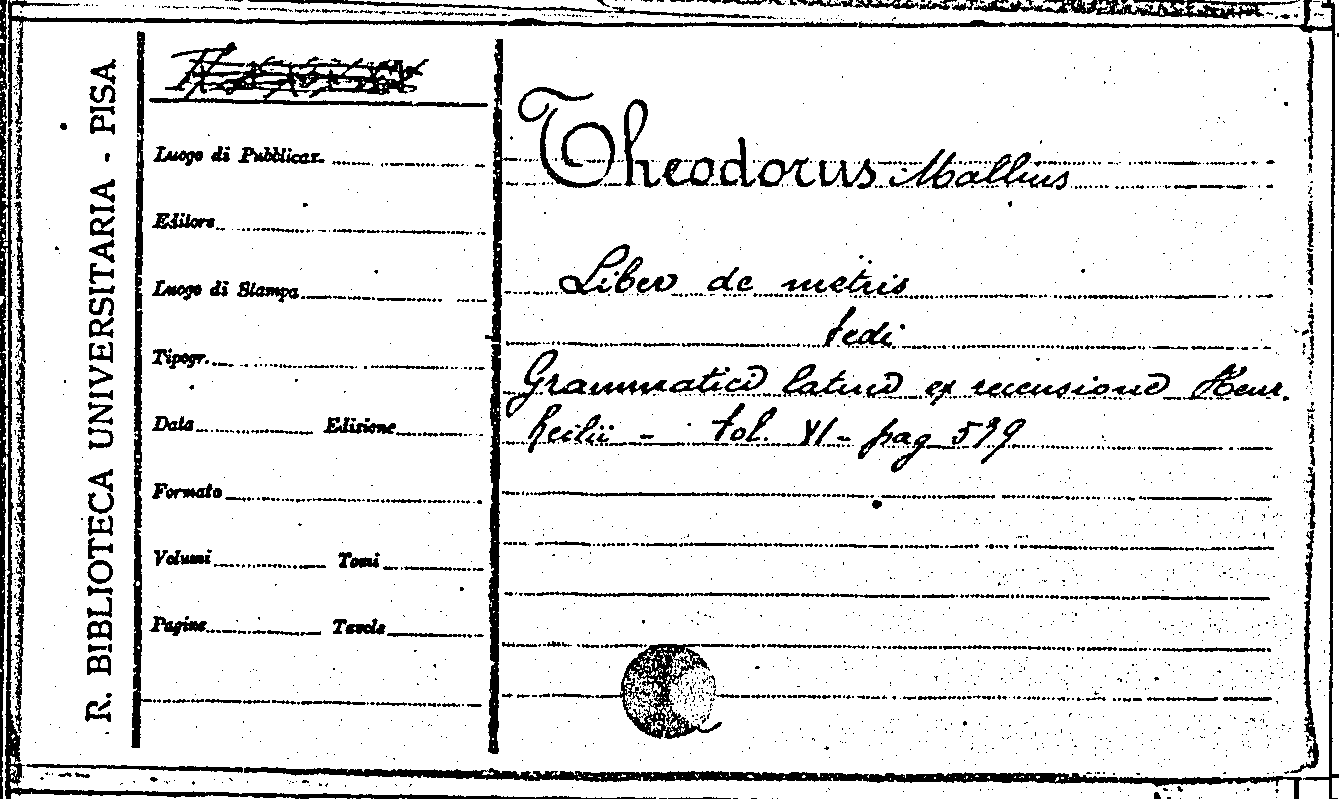 R. BIBLIOTECA UNIVERSITARIA - PISA
Luogo di Pubblicaz.
Editore
Luogo di Stampa
Tipogr.
Data Edizione
Formato
Volumi Tomi
Pagine Tavole
Theodorus Mallius
Liber de metris
vedi
Grammatici latini ex recensione Henr.
Keilii - Vol. VI - pag 579